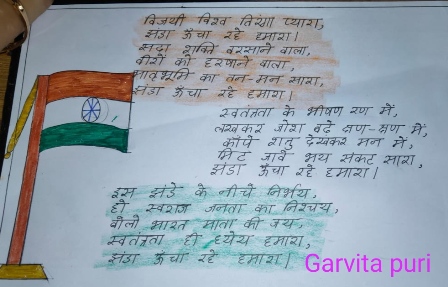 विजयी विश्व तिरंगा प्यारा,
झंडा ऊँचा रहे हमारा।
सदा शक्ति बरसाने वाला,
वीरों को हरषाने वाला,
मातृभूमि का तन-मन सारा,
झंडा ऊँचा रहे हमारा।
स्वतंत्रता के भीषण रण में,
लखकर जोश बढ़े क्षण-क्षण में,
काँपे शत्रु देखकर मन में,
मिट जावे भय संकट सारा,
झंडा ऊँचा रहे हमारा।
इस झंडे के नीचे निर्भय,
हो स्वराज जनता का निश्चय,
बोलो भारत माता की जय,
स्वतंत्रता ही ध्येय हमारा,
झंडा ऊँचा रहे हमारा।
Garvita puri